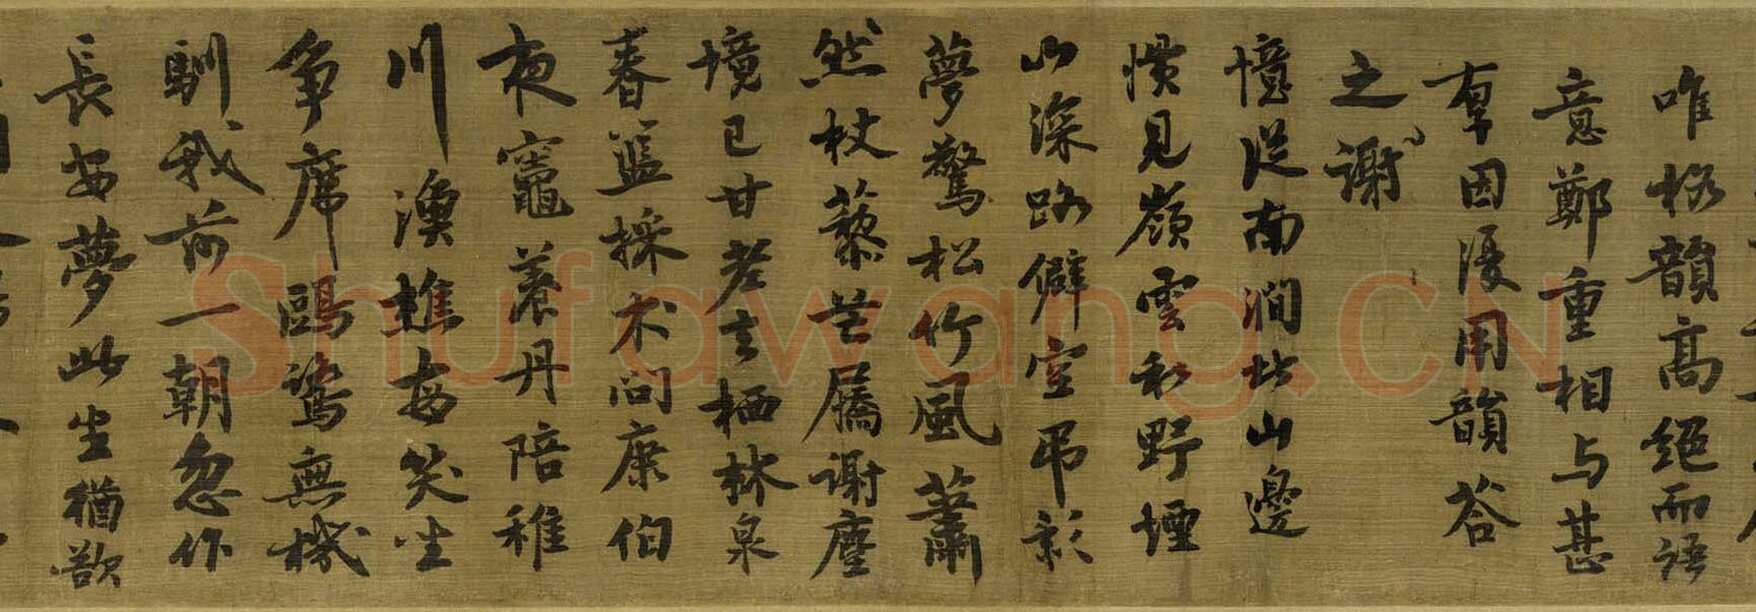 唯格韻高絕而語
意鄭重相與甚
厚因復用韻荅
之謝
憶從南澗北山邊
慣見嶺雲和野煙
山深路僻空弔影
夢驚松竹風蕭
然杖藜芒屩謝塵
境已甘老去栖林泉
春籃採朮問康伯
夜竈養丹陪稚
川漁樵每笑坐
爭席鷗鷺無機
馴我前一朝忽作
長安夢此生猶欲
Shufawang.CN